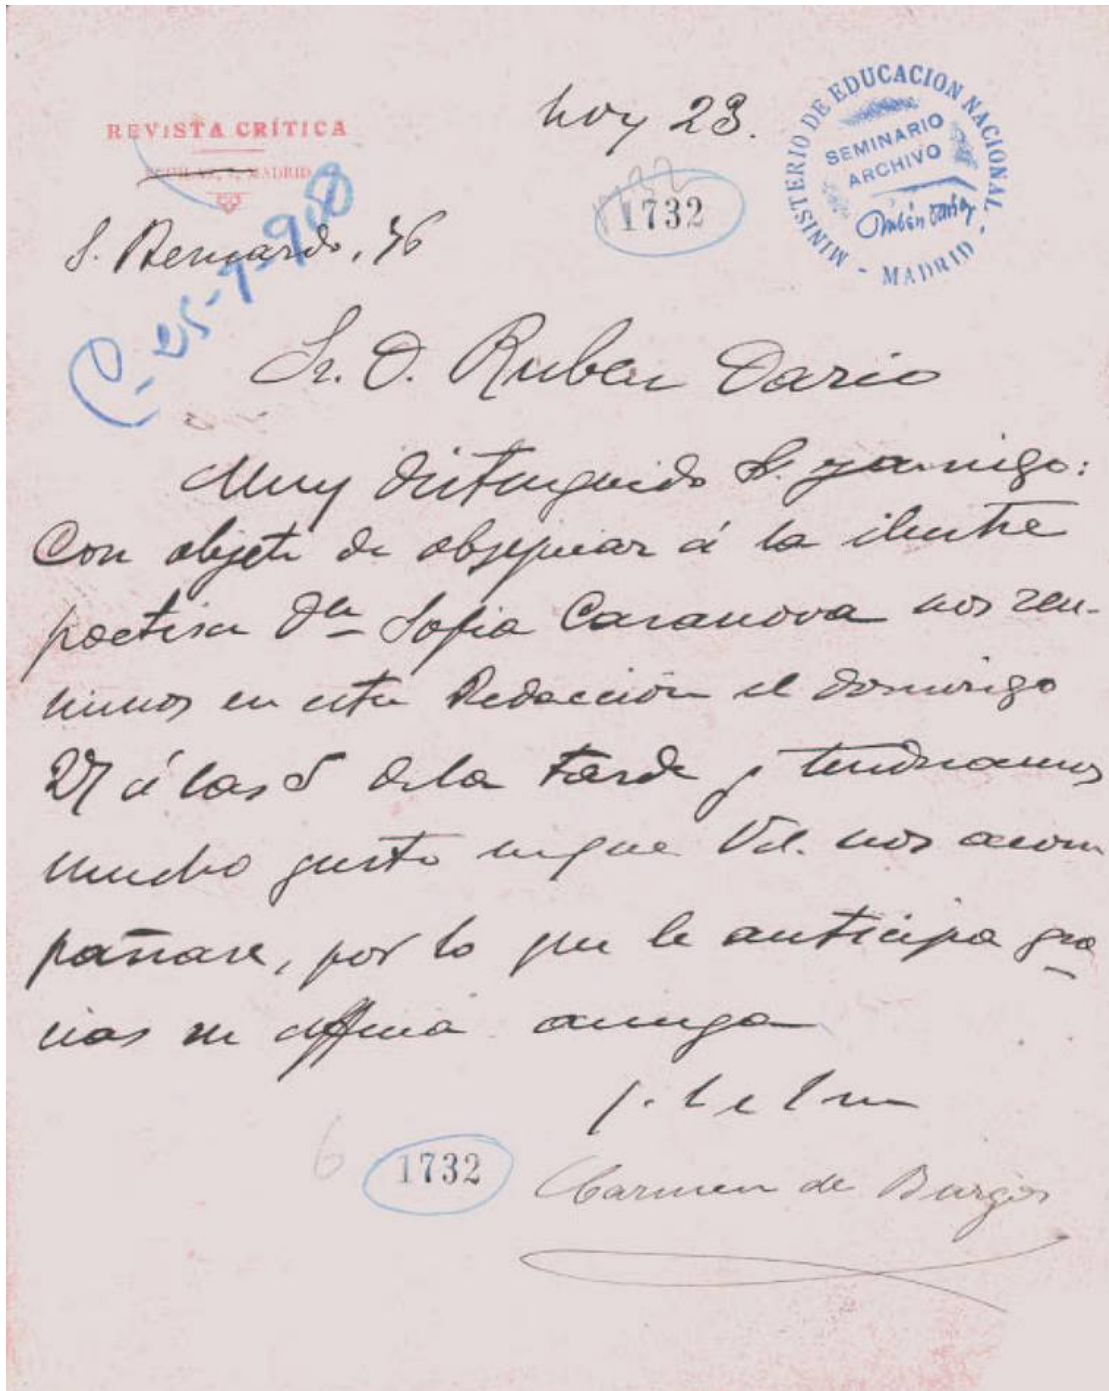 REVISTA CRÍTICA
MADRID
hoy 23.
MINISTERIO DE EDUCACION NACIONAL - MADRID -
SEMINARIO
ARCHIVO
Rubén Darío
1732
S. Bernardo, 76
C-25-9-908
Sr. D. Ruben Dario
Muy distinguido Sr. y amigo:
Con objeto de obsequiar á la ilustre
poetisa Dª Sofia Casanova nos reu-
nimos en esta Redacción el domingo
27 á las 5 de la tarde y tendriamos
mucho gusto en que Vd. nos acom
pañase, por lo que le anticipa gra
cias su affma amiga
1732
Carmen de Burgos